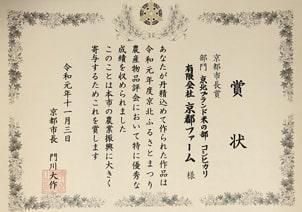 賞状
京都市長賞
部門 京北ブランド米の部 コシヒカリ
有限会社 京都ファーム 様
あなたが丹精込めて作られた作品は
令和元年度京北ふるさとまつり
農産物品評会において特に優秀な
成績を収められました
このことは本市の農業振興に大きく
寄与するためこれを賞します
令和元年十一月三日
京都市長 門川大作